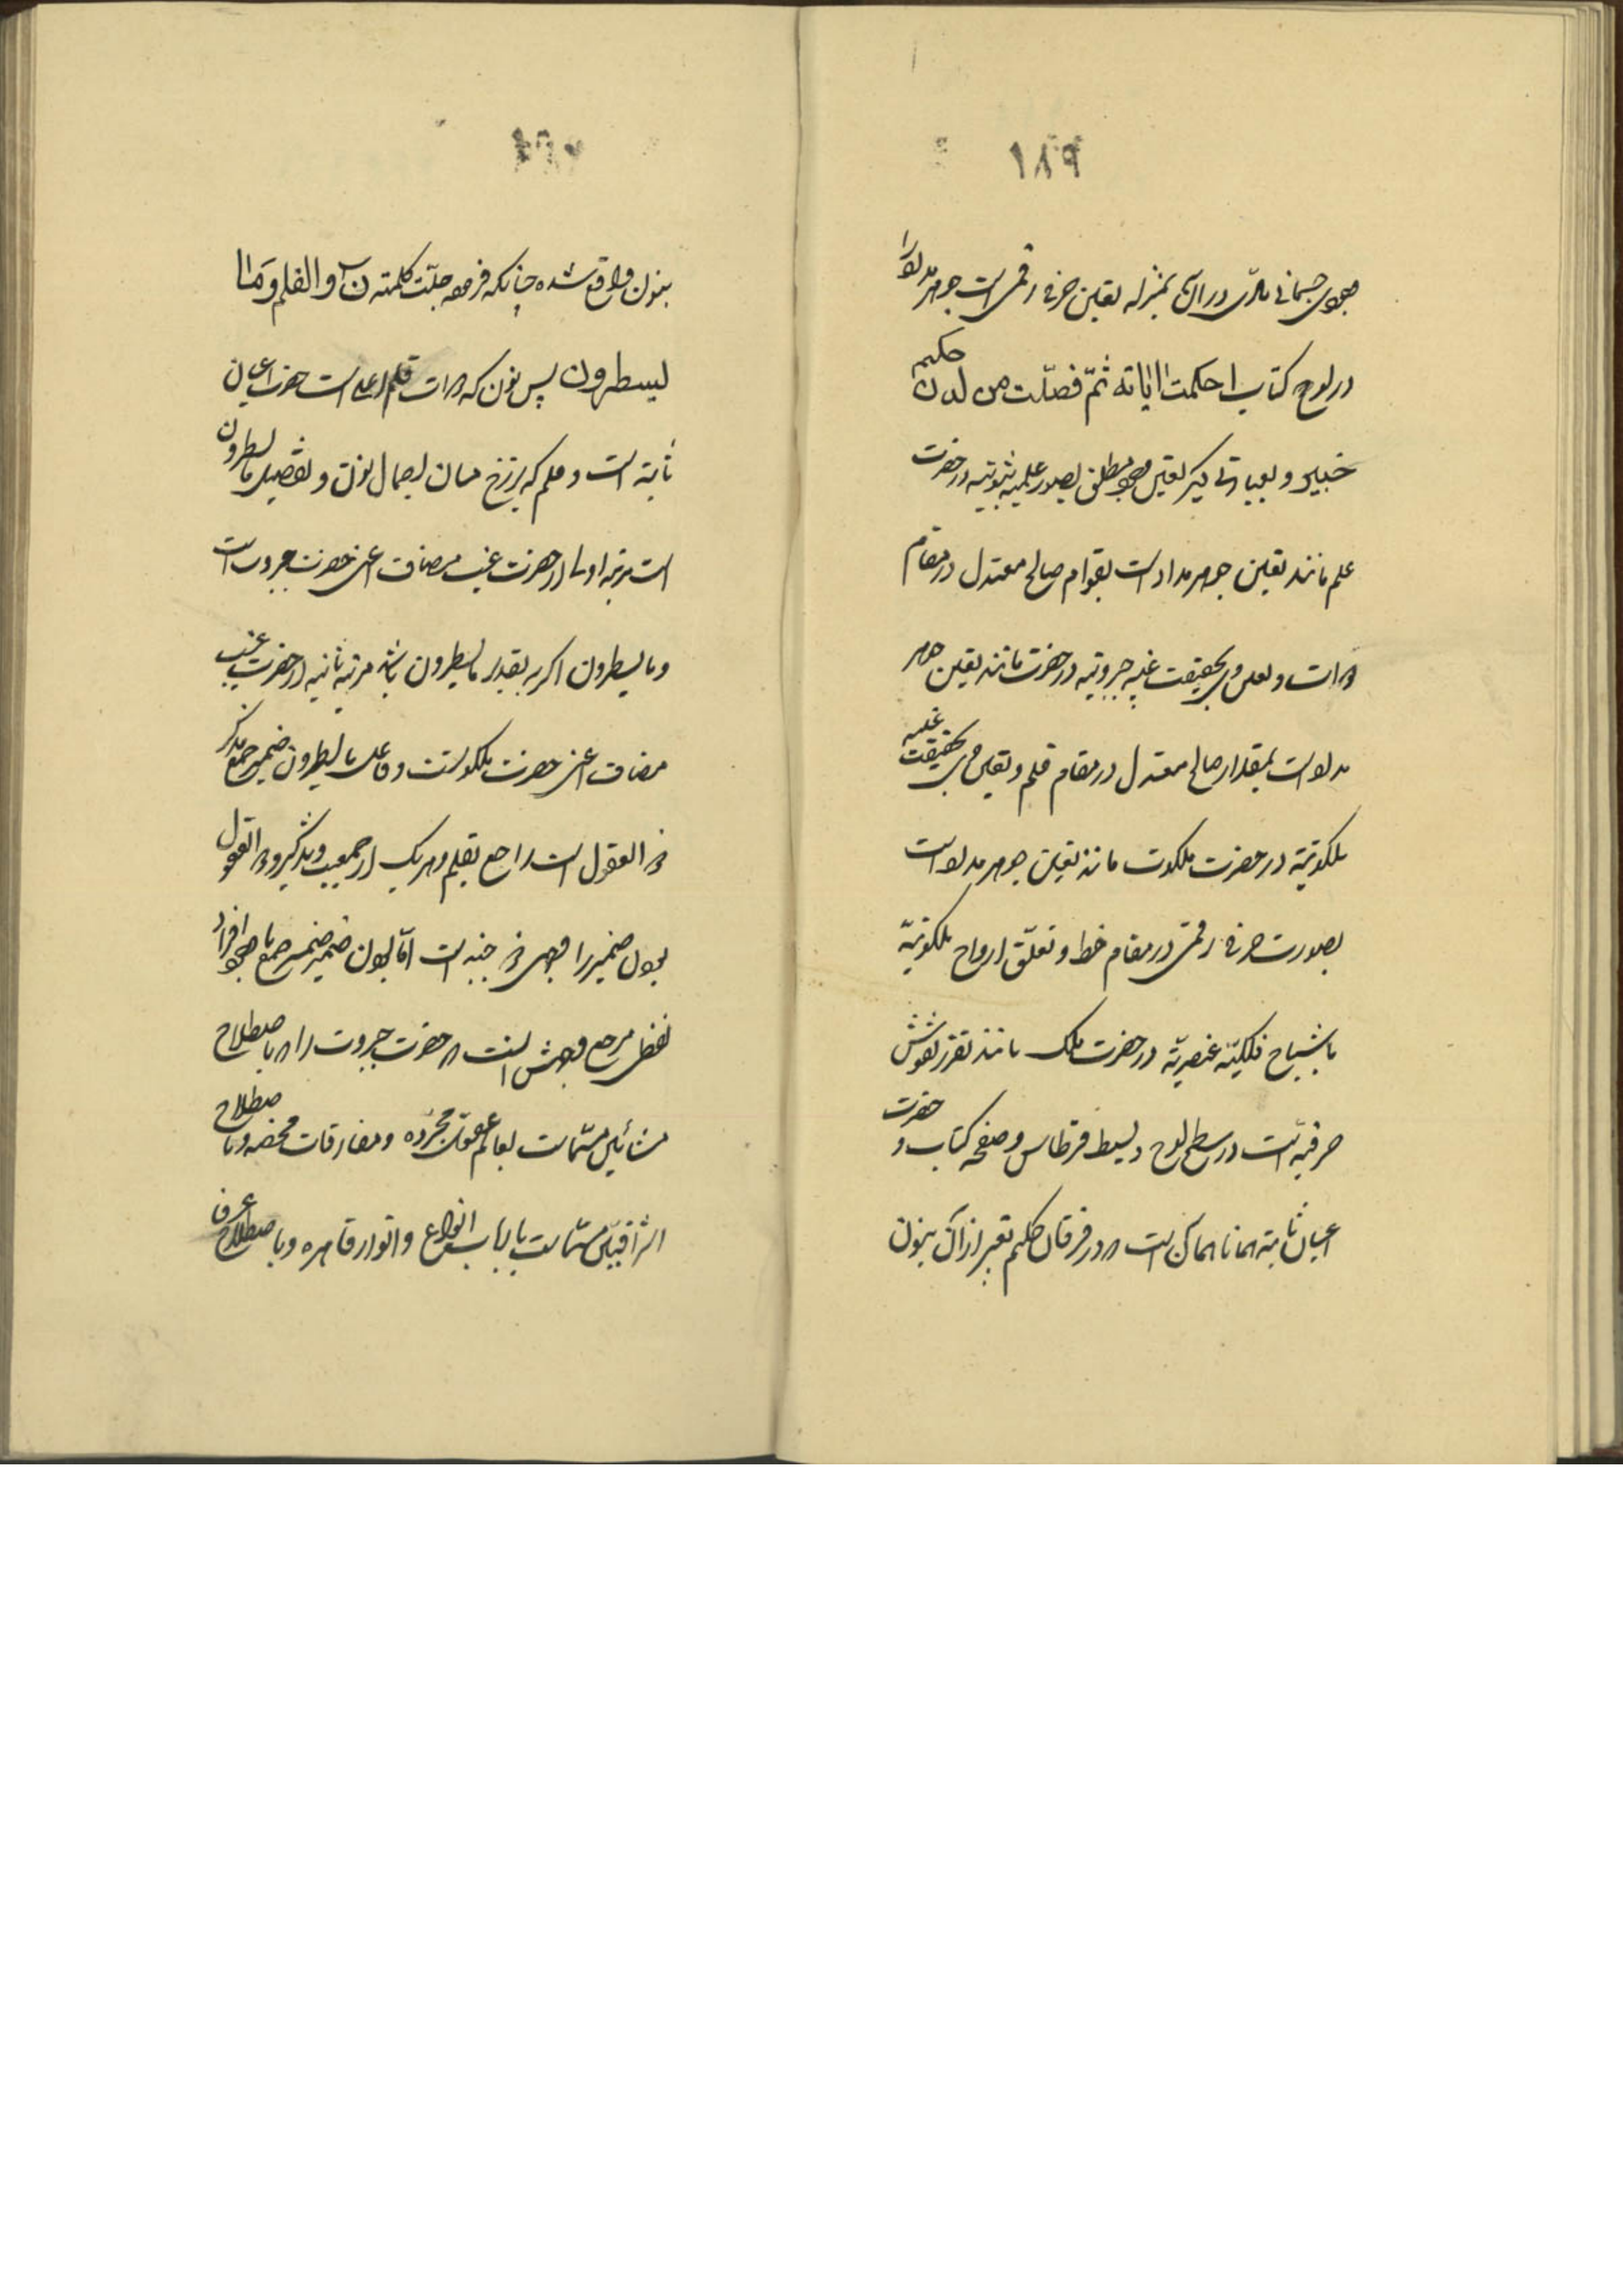 ١٨٩
وجود جسمانی مادی در آن بمنزله تعین حرفی رقمی است جوهر مداد را
در لوح کتاب احکمت اایاته ثمّ فصّلت من لدن حکیم
خبیر و بعبارتی دیگر تعین وجود مطلق بصور علمیه ثبوتیه در حضرت
علم مانند تعین جوهر مداد است بقوام صالح معتدل در مقام
دوات و تعین وی بحقیقت غیبیه جبروتیه در حضرت مانند تعین جوهر
مداد است بمقدار صالح معتدل در مقام قلم و تعین وی بحقیقت غیبیه
ملکوتیّه در حضرت ملکوت مانند تعین جوهر مداد است
بصورت حرفی رقمی در مقام خط و تعلّق ارواح ملکوتیّه
باشباح فلکیّه عنصریّه در حضرت ملک مانند تقرر نقوش
حرفیّه است در سطح لوح و بسیط قرطاس و صفحه کتاب و حضرت
اعیان ثابته همانا همان است که در فرقان حکیم تعبیر از آن بنون
١٩٠
بنون واقع شده چنانکه فرموده جلّت کلمته ن و القلم و ما
یسطرون پس نون که دوات قلم اعلی است حضرت اعیان
ثابته است و قلم که برزخ میان اجمال نون و تفصیل ما یسطرون
است مرتبه اولی از حضرت غیب مضاف اعنی حضرت جبروت است
و ما یسطرون اگر به تقدیر ما یسطرون باشد مرتبه ثانیه از حضرت غیب
مضاف اعنی حضرت ملکوتست و فاعل ما یسطرون ضمیر جمع مذکر
ذو العقول است راجع بقلم و هر یک از جمعیت و تذکیر و ذو العقول
بودن ضمیر را وجهی و جنبه است امّا بودن ضمیر ضمیر جمع با وجود افراد
لفظ مرجع وجهش آنست که حضرت جبروت را که باصطلاح
مشائین مسمّاست بعالم عقول مجرّده و مفارقات محضه و باصطلاح
اشراقیین مسمّاست بارباب انواع و انوار قاهره و باصطلاح عرفا